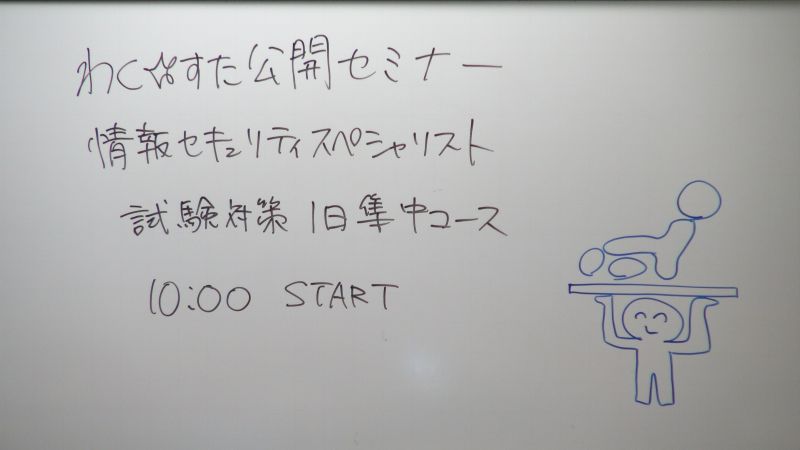 わく☆すた公開セミナー
情報セキュリティスペシャリスト
試験対策 1日集中コース
10:00 START